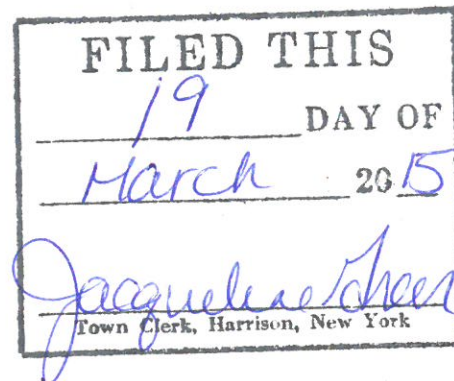 FILED THIS
19 DAY OF
March 2015
Jacqueline
Town Clerk, Harrison, New York